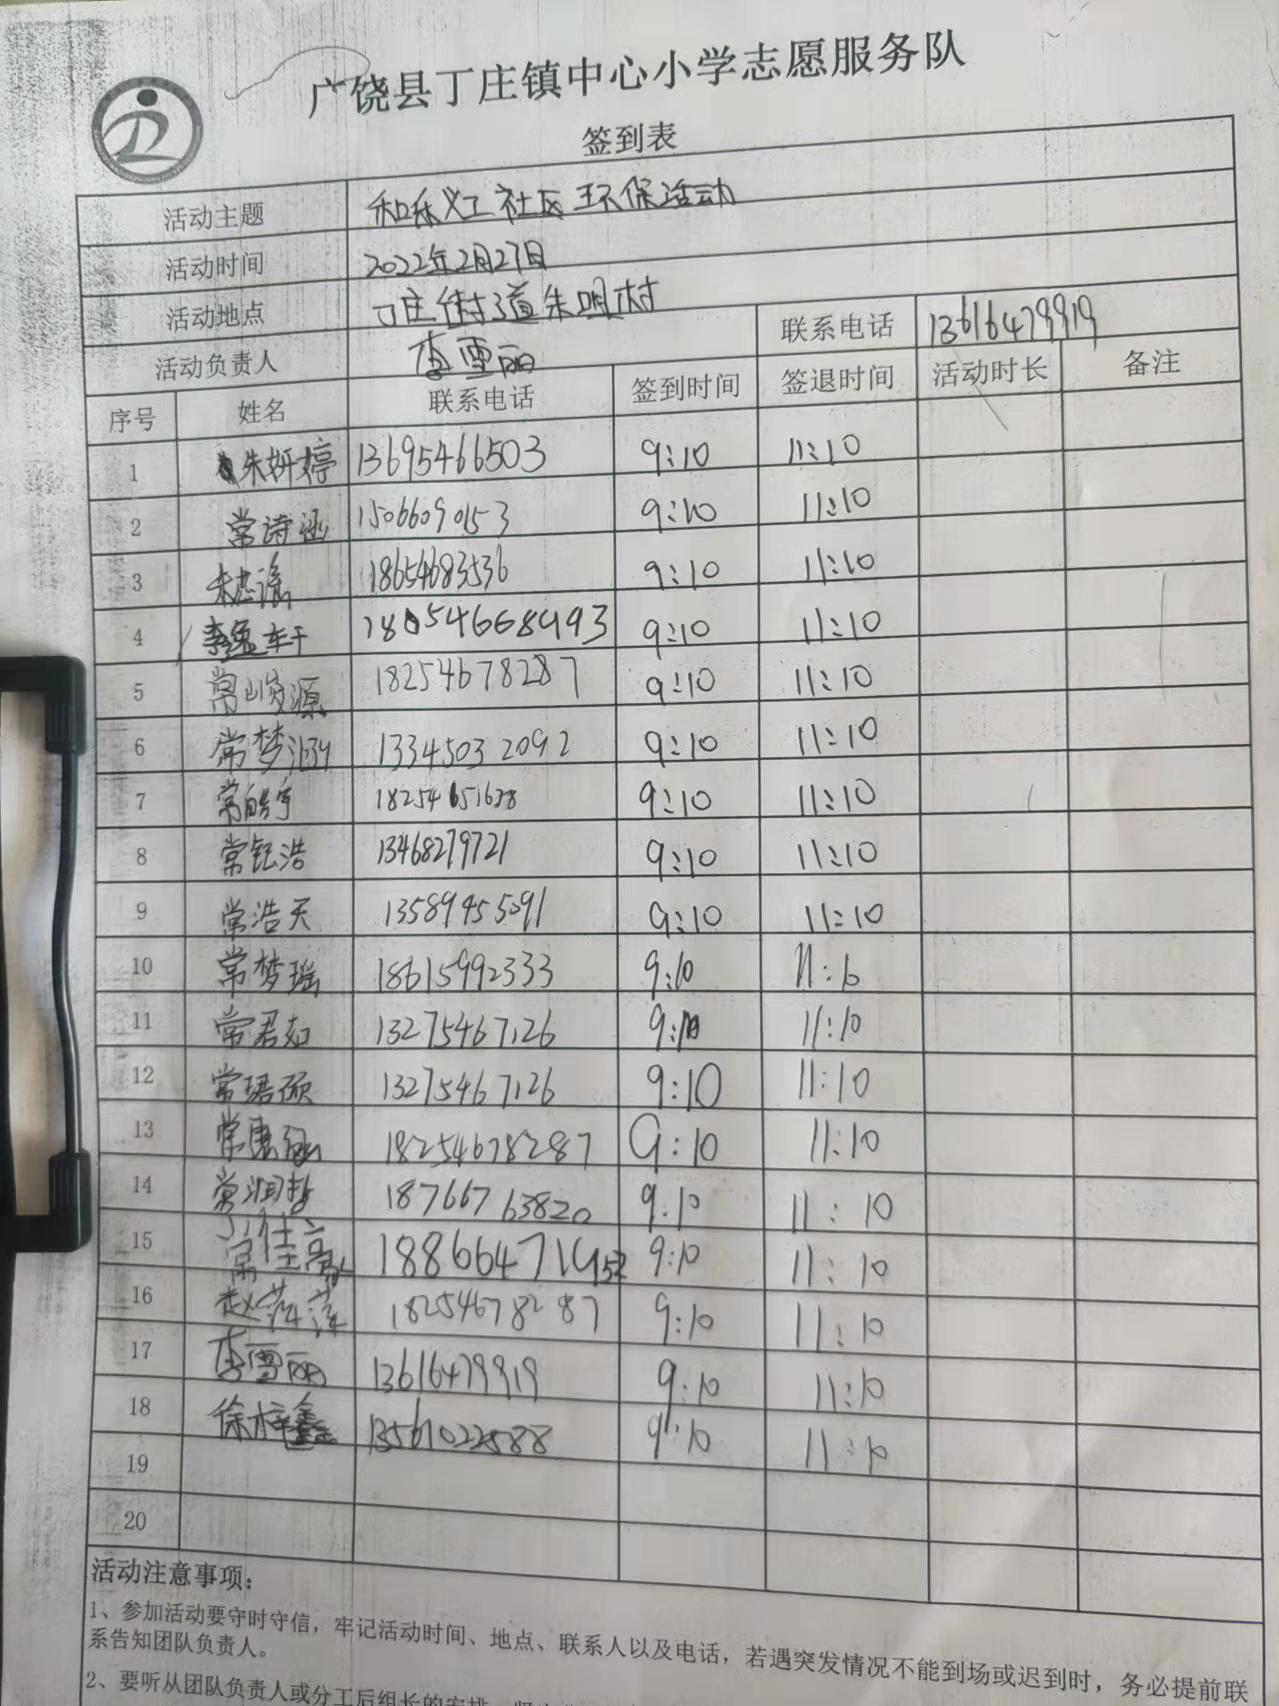 广饶县丁庄镇中心小学志愿服务队
签到表
活动主题 和乐义工社区环保活动
活动时间 2022年2月27日
活动地点 丁庄街道朱明村
活动负责人 李雪丽 联系电话 13616479919
序号 姓名 联系电话 签到时间 签退时间 活动时长 备注
1 朱妍婷 13695466503 9:10 11:10
2 常诗涵 15066090153 9:10 11:10
3 18654683536 9:10 11:10
4 李孟轩 18054668993 9:10 11:10
5 常峻源 18254678287 9:10 11:10
6 常梦 13345032092 9:10 11:10
7 常皓宇 18254651638 9:10 11:10
8 常钰浩 13468279721 9:10 11:10
9 常浩天 13589455091 9:10 11:10
10 常梦瑶 18615992333 9:10 11:10
11 常君茹 13275467126 9:10 11:10
12 常珺硕 13275467126 9:10 11:10
13 常 18254678287 9:10 11:10
14 常润哲 18766763820 9:10 11:10
15 常佳 9:10 11:10
16 赵萍萍 18254678287 9:10 11:10
17 李雪丽 13616479919 9:10 11:10
18 徐梓鑫 13561022588 9:10 11:10
19
20
活动注意事项：
1、参加活动要守时守信，牢记活动时间、地点、联系人以及电话，若遇突发情况不能到场或迟到时，务必提前联
系告知团队负责人。
2、要听从团队负责人或分工后组长的安排